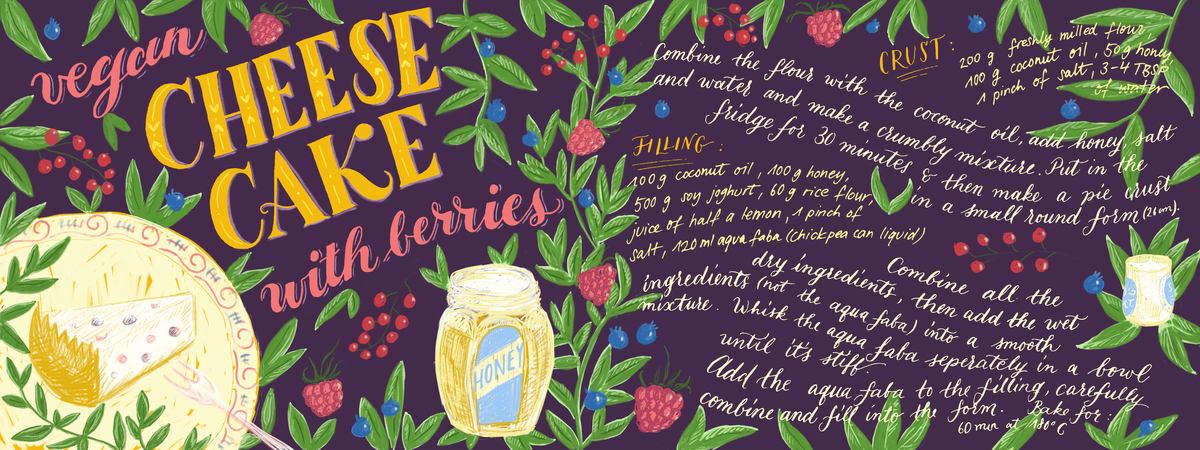 vegan
CHEESE
CAKE
with berries
HONEY
CRUST:
200 g freshly milled flour,
100 g coconut oil, 50g honey
1 pinch of salt, 3-4 TBSP
of water
Combine the flour with the coconut oil, add honey, salt
and water and make a crumbly mixture. Put in the
fridge for 30 minutes & then make a pie crust
in a small round form (26cm).
FILLING:
100g coconut oil, 100g honey,
500g soy joghurt, 60g rice flour,
juice of half a lemon, 1 pinch of
salt, 120 ml aqua faba (chickpea can liquid)
Combine all the
dry ingredients, then add the wet
ingredients (not the aqua faba) into a smooth
mixture. Whisk the aqua faba seperately in a bowl
until it's stiff.
Add the aqua faba to the filling, carefully
combine and fill into the form. Bake for:
60 min at 180°C